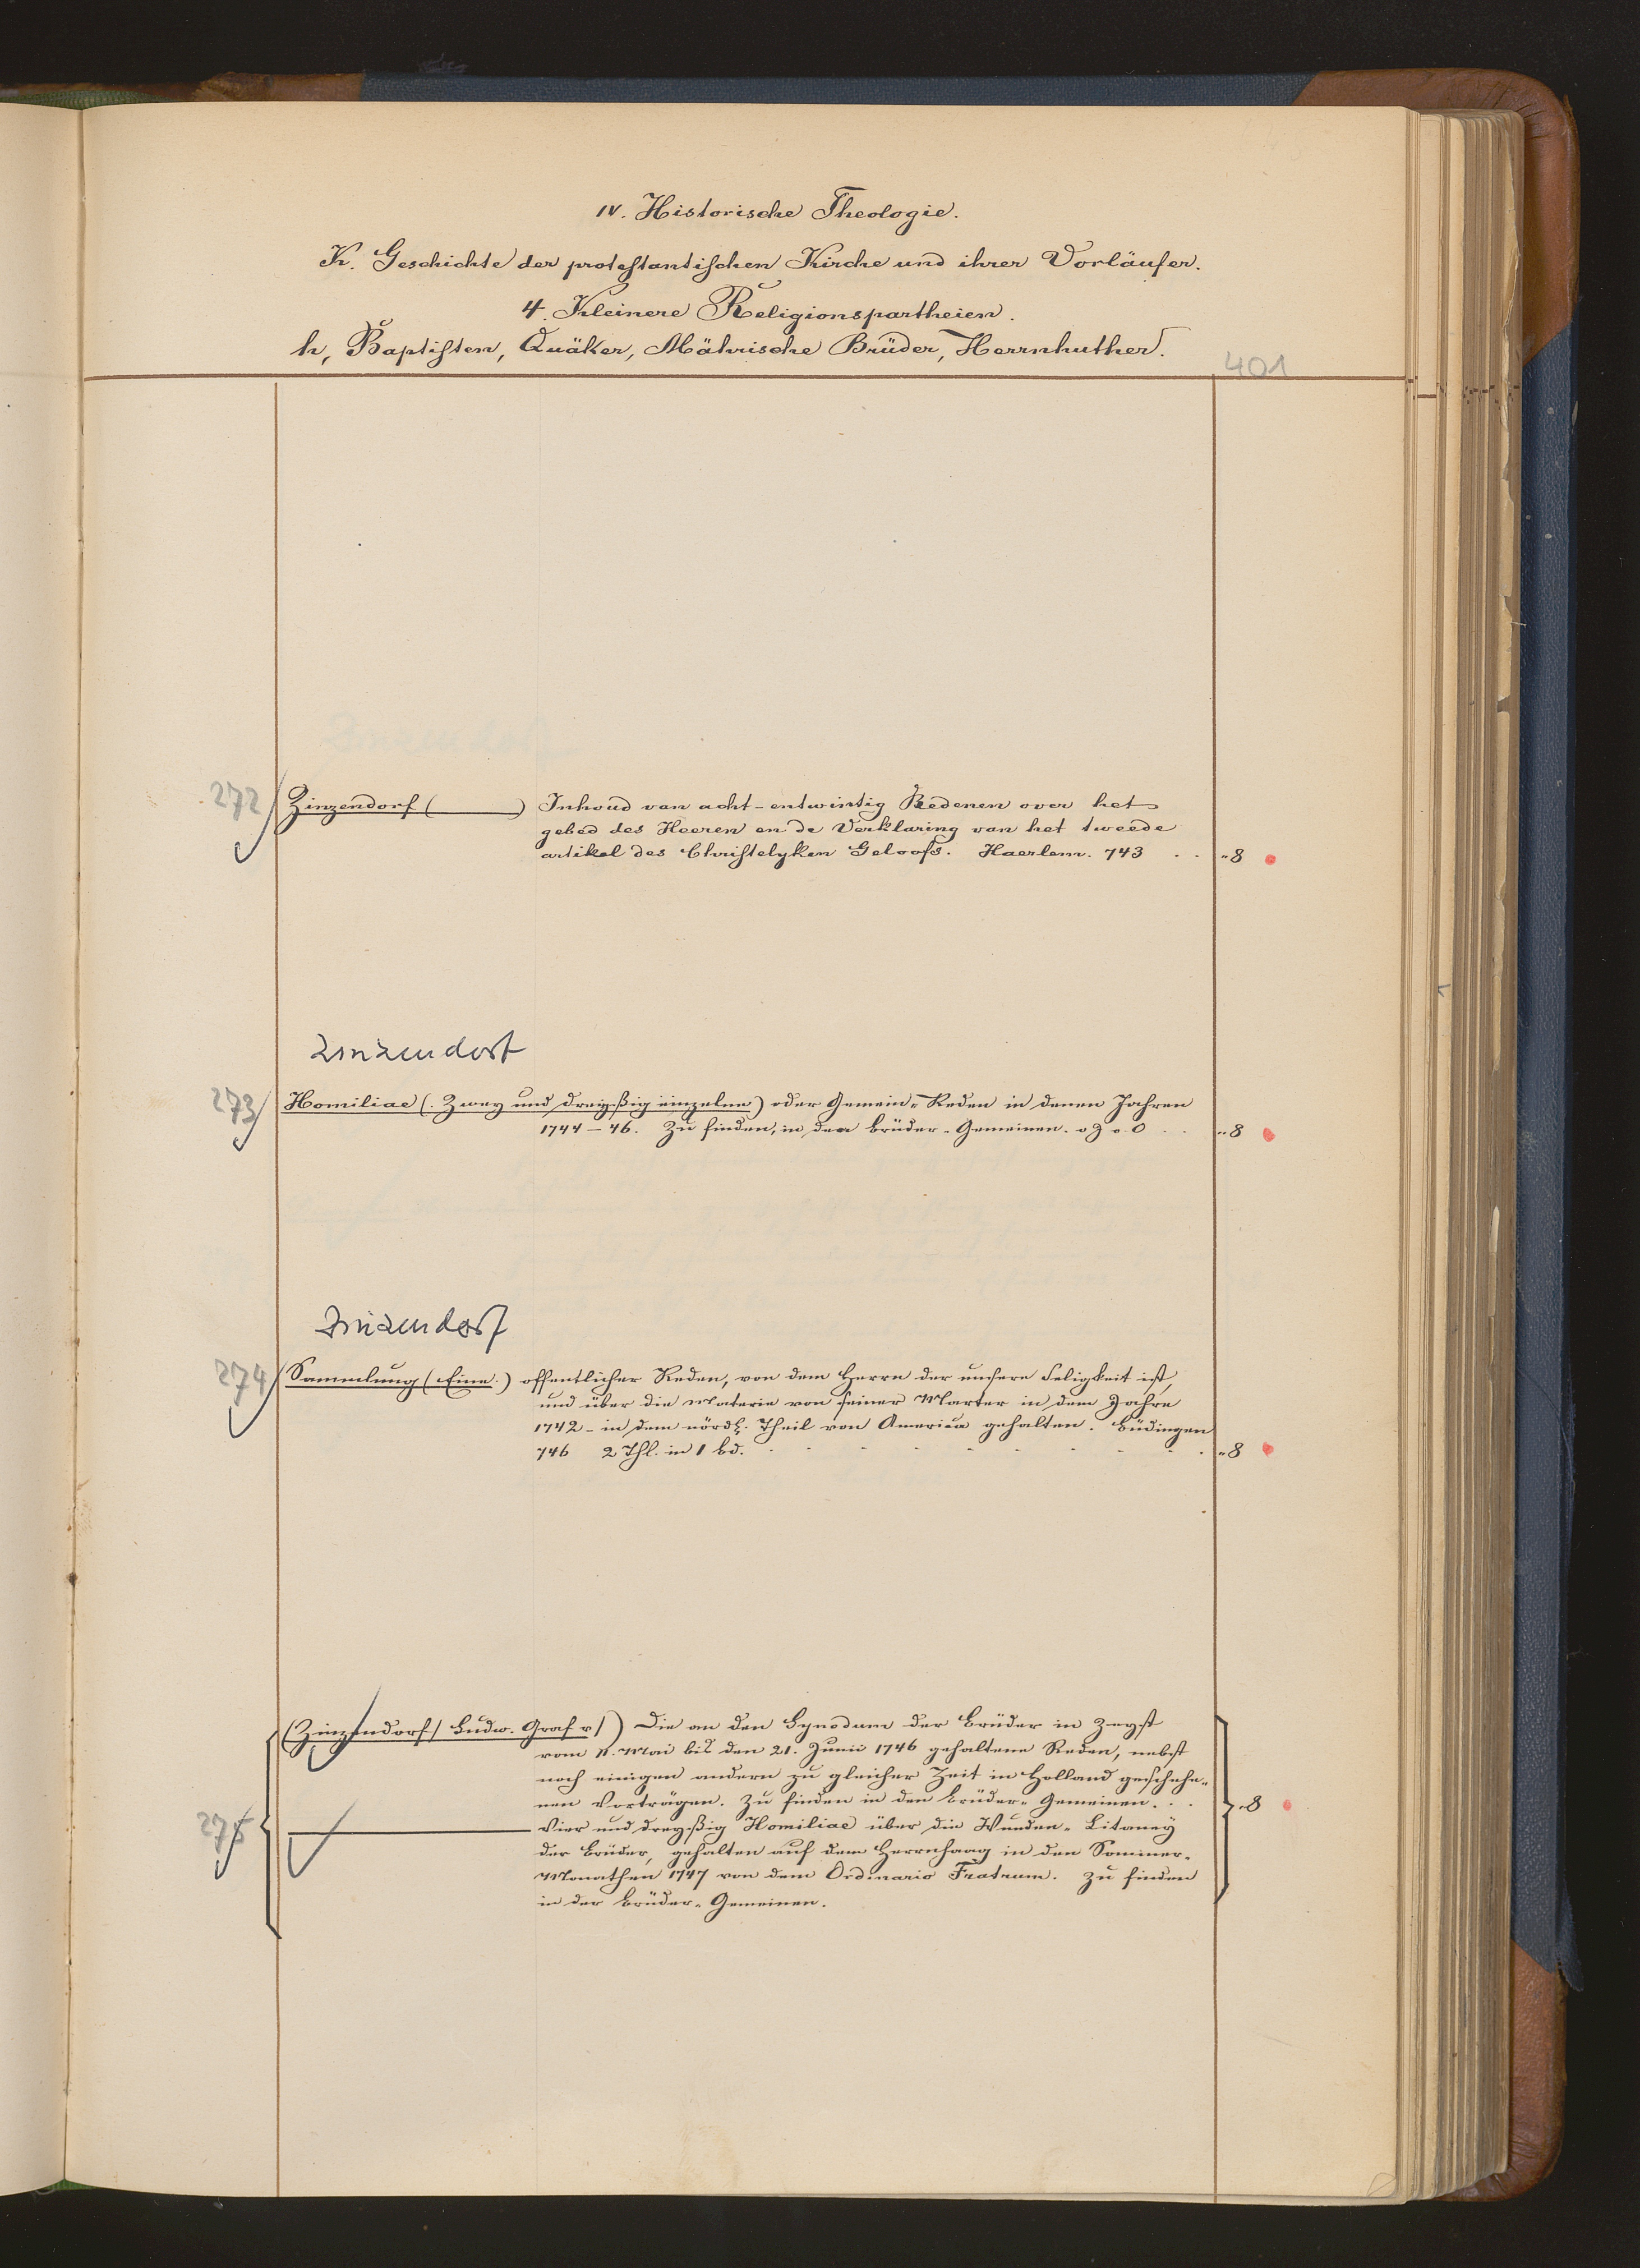 IV. Historische Theologie.
K. Geschichte der protestantischen Kirche und ihrer Vorläufer.
4. Kleinere Religionspartheien.
h, Baptisten, Quäker, Mährische Brüder, Herrnhuther.
401
272 Zinzendorf (———) Inhoud van acht-entwintig Redenen over het
gebed des Heeren en de Verklaring van het tweede
artikel des Christelyken Geloofs. Haerlem. 743 . . "8
Zinzendorf
273 Homiliae (: Zwey und dreyßig einzelne) oder Gemein-Reden in denen Jahren
1744–46. Zu finden, in den Brüder-Gemeinen. o J o. O . . "8
Zinzendorf
274 Sammlung (Eine:) offentlicher Reden, von dem Herrn der unsere Seligkeit ist,
und über die Materie von seiner Marter in dem Jahre
1742 - in dem nördl. Theil von America gehalten. Büdingen
746 2 Thl. in 1 Bd. . . . . . . . . . "8
(Zinzendorf/ Ludw. Graf v/) Die an den Synodum der Brüder in Zeyst
vom 11. Mai bis den 21. Junii 1746 gehaltene Reden, nebst
noch einigen andern zu gleicher Zeit in Holland geschehe-
nen Vorträgen. Zu finden in den Brüder-Gemeinen. . . "8
275 ——— Vier und dreyßig Homiliae über die Wunden-Litaney
der Brüder, gehalten auf dem Herrnhaag in den Sommer-
Monathen 1747 von dem Ordinario Fratrum. Zu finden
in der Brüder-Gemeinen.